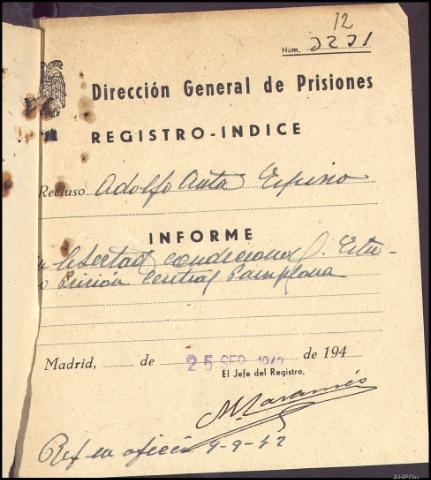 12
Núm. 2271
Dirección General de Prisiones
REGISTRO-INDICE
Recluso Adolfo Anta Espino
INFORME
libertad condicional. Estu-
o prisión Central Pamplona
Madrid, de 25 SEP 1942 de 194
El Jefe del Registro,
Ref su oficio 9-9-42